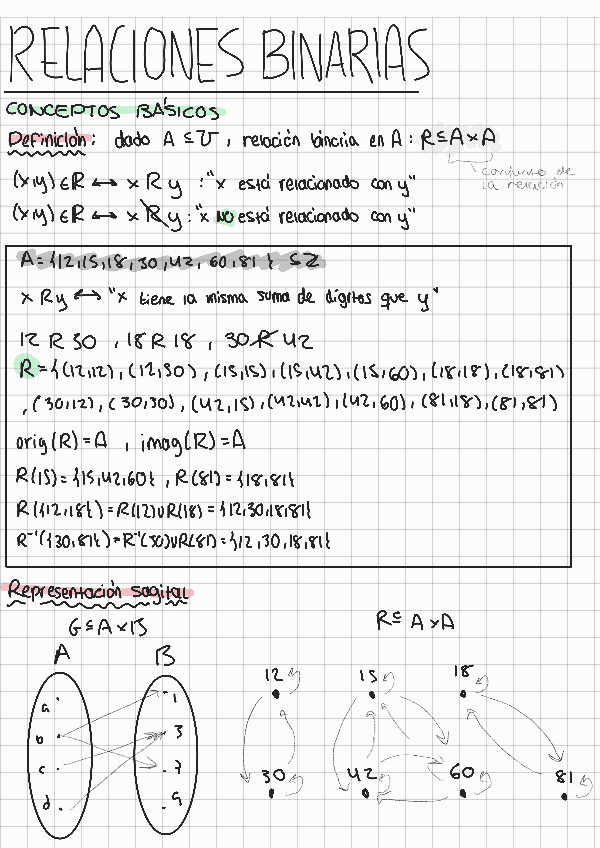 RELACIONES BINARIAS
CONCEPTOS BÁSICOS
Definición: dado A ⊆ U, relación binaria en A: R ⊆ A × A
conjunto de
la relación
(x,y) ∈ R ↔ x R y : "x está relacionado con y"
(x,y) ∈ R ↔ x R̸ y : "x NO está relacionado con y"
A = {12, 15, 18, 30, 42, 60, 81} ⊆ Z
x R y ↔ "x tiene la misma suma de dígitos que y"
12 R 30 , 18 R 18 , 30 R̸ 42
R = {(12,12), (12,30), (15,15), (15,42), (15,60), (18,18), (18,81)
, (30,12), (30,30), (42,15), (42,42), (42,60), (81,18), (81,81)
orig(R) = A , imag(R) = A
R(15) = {15, 42, 60} , R(81) = {18, 81}
R({12,18}) = R(12) ∪ R(18) = {12, 30, 18, 81}
R⁻¹({30,81}) = R⁻¹(30) ∪ R(81) = {12, 30, 18, 81}
Representación sagital
G ⊆ A × B
R ⊆ A × A
A B
a 1
b 3
c 7
d 9
12 15 18
30 42 60 81